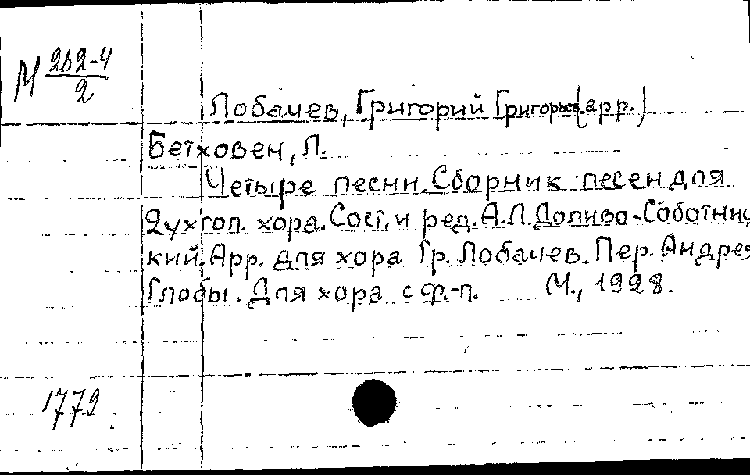 М 282-4
2
Лобачев, Григорий Григорьев (арр.)
Бетховен, Л.
Четыре песни. Сборник песен для
2ухгол. хора. Сост. и ред. А.Л. Доливо-Соботниц
кий. Арр. для хора Гр. Лобачев. Пер. Андрея
Глобы. Для хора с ф.-п. М., 1928.
1772